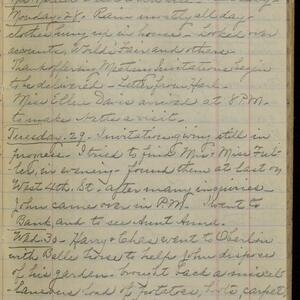 Monday 28. Rain mostly all day -
clothes hung up in house - looked over
accounts, World's Fair and others.
Thanksgiving Meeting invitations begin
to be delivered - Letter from
Miss Ellen Davis arrived at 8 P.M.
to make a visit.
Tuesday. 29 - Invitation giving still in
progress. I tried to find Mrs. Miss Ful-
ler, in evening - found them at last on
West 4th St. after many inquiries -
John came over in P.M. I went to
Bank and to see Aunt Anne.
Wed 30 - Harry & Chas went to Oberlin
with Belle horse to help John dispose
of his garden. brought back a miscel-
laneous load of potatoes, carpet,